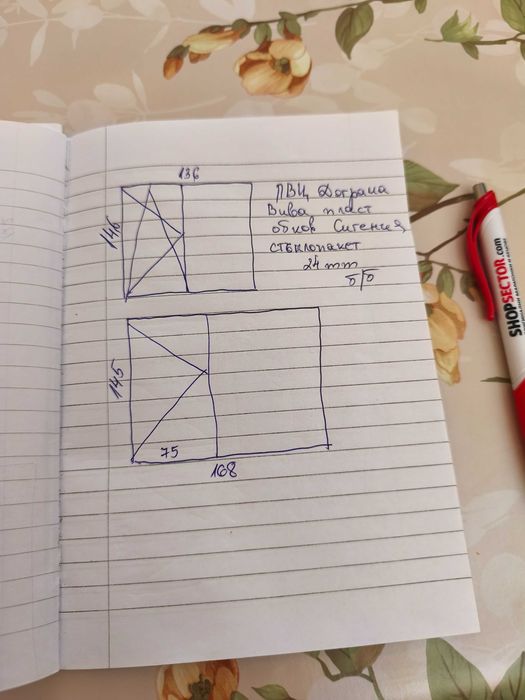 136
146
ПВЦ Дограма
Вива пласт
обков Сигения
стеклопакет
24 mm
б/б
145
75
168
SHOPSECTOR.com